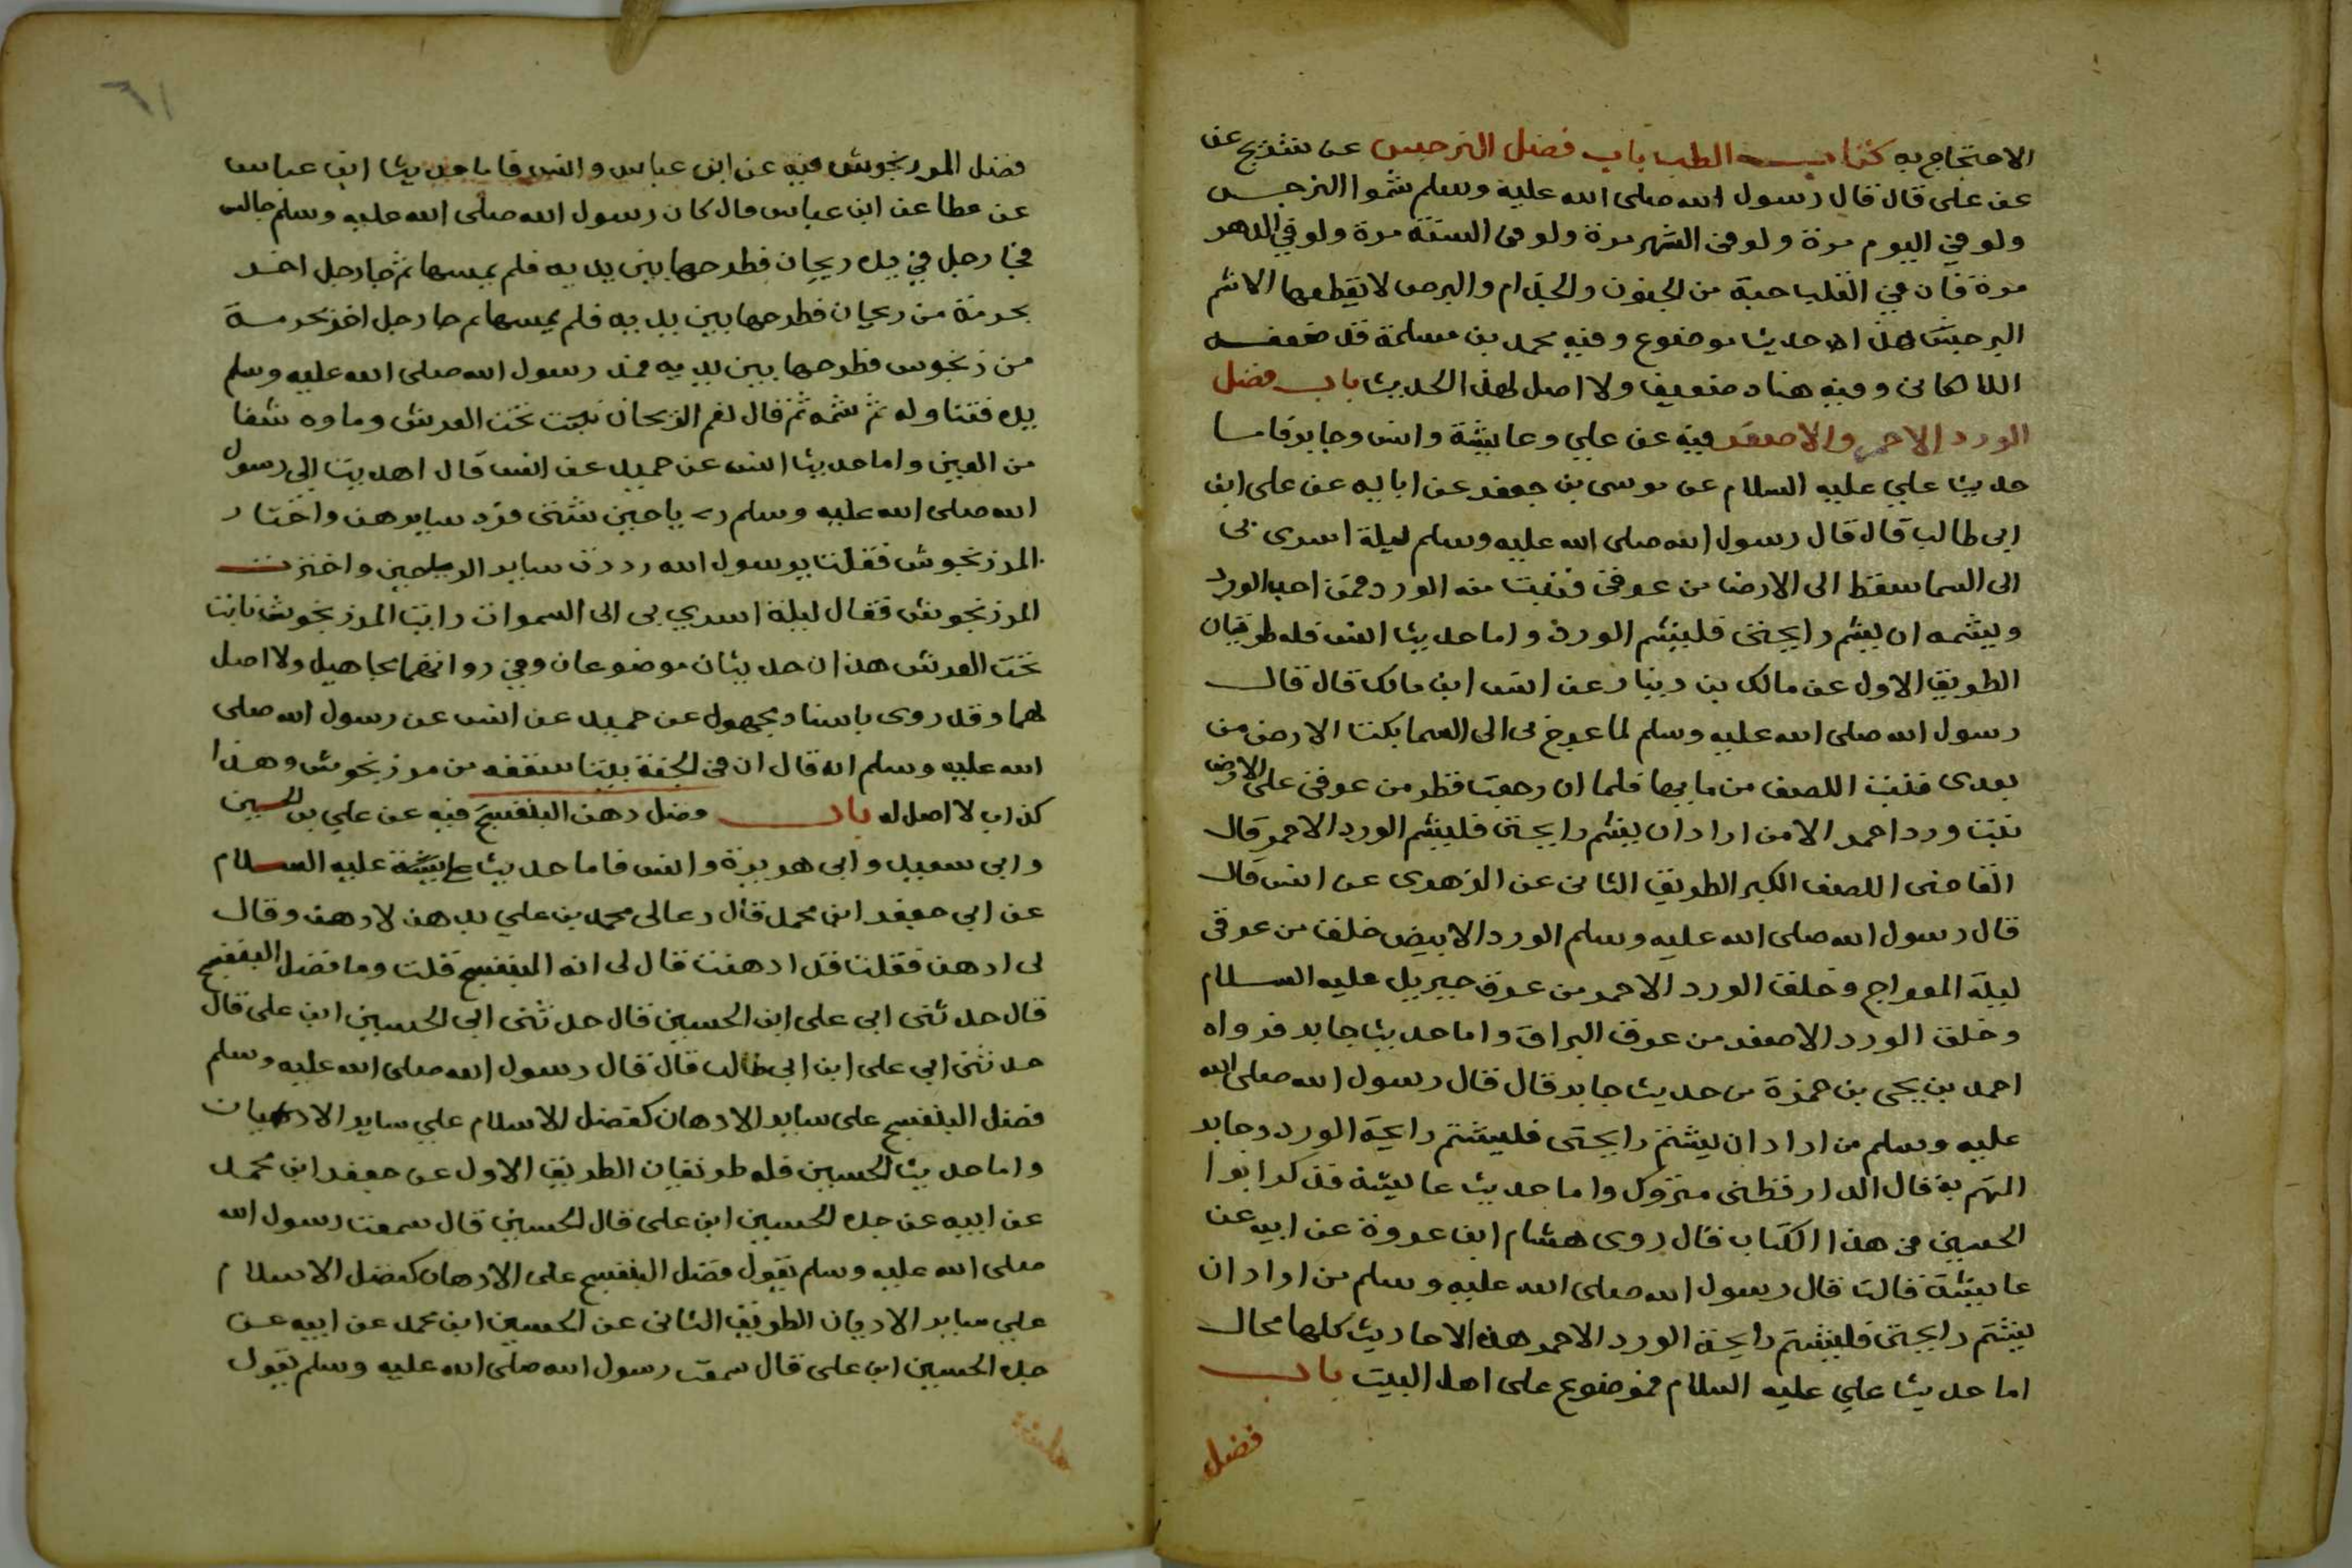 الاحتجاج به كتاب الطب باب فضل النرجس عن شريح عن
عن على قال قال رسول الله صلى الله عليه وسلم شموا النرجس
ولو فى اليوم مرة ولو فى الشهر مرة ولو فى السنة مرة ولو فى الدهر
مرة فان فى القلب حبة من الجنون والجذام والبرص لا يقطعها الا شم
النرجس هذا الاحديث موضوع وفيه محمد بن مسلمة قد ضعفه
اللالكانى وفيه هناد ضعيف ولا اصل لهذا الحديث باب فضل
الورد الاحمر والاصفر فيه عن علي وعايشة وانس وجابر فاما
حديث علي عليه السلام عن موسى بن جعفر عن ابايه عن على ابن
ابى طالب قال قال رسول الله صلى الله عليه وسلم ليلة اسرى بى
الى السما سقط الى الارض من عرقى فنبت منه الورد فمن احب الورد
ويشمه ان يشم رايحتى فليشم الورد واما حديث انس فله طريقان
الطريق الاول عن مالك بن دينار عن انس ابن مالك قال قال
رسول الله صلى الله عليه وسلم لما عرج بى الى السما بكت الارض من
بعدى فنبت اللصف من مايها فلما ان رجعت قطر من عرقى على الارض
نبت ورد احمر الا من اراد ان يشم رايحتى فليشم الورد الاحمر قال
القاضى اللصف الكبر الطريق الثانى عن الزهرى عن انس قال
قال رسول الله صلى الله عليه وسلم الورد الابيض خلق من عرقى
ليلة المعراج وخلق الورد الاحمر من عرق جبريل عليه السلام
وخلق الورد الاصفر من عرق البراق واما حديث جابر فرواه
احمد بن يحى بن حمزة من حديث جابر قال قال رسول الله صلى الله
عليه وسلم من اراد ان يشتم رايحتى فليشتم رايحة الورد وجابر
المتهم به قال الدارقطنى متروك واما حديث عايشة فذكر ابوا
الحسين فى هذا الكتاب قال روى هشام ابن عروة عن ابيه عن
عايشة قالت قال رسول الله صلى الله عليه وسلم من اراد ان
يشتم رايحتى فليشتم رايحة الورد الاحمر هذه الاحاديث كلها محال
اما حديث علي عليه السلام فموضوع على اهل البيت باب
فضل
٦١
فضل المرزنجوش فيه عن ابن عباس وانس فاما حديث ابن عباس
عن عطا عن ابن عباس قال كان رسول الله صلى الله عليه وسلم جالس
فجا رجل فى يده ريحان فطرحها بين يديه فلم يمسها ثم جا رجل اخر
بحزمة من ريحان فطرحها بين يديه فلم يمسها ثم جا رجل اخر بحزمة
من زنجوس فطرحها بين يديه فمد رسول الله صلى الله عليه وسلم
يده فتناوله ثم شمه ثم قال نعم الريحان نبت تحت العرش وماوه شفا
من العين واما حديث انس عن حميد عن انس قال اهديت الى رسول
الله صلى الله عليه وسلم رياحين شتى فرد سايرهن واختار
المرزنجوش فقلت يرسول الله رددت ساير الرياحين واخترت
المرزنجوش فقال ليلة اسري بى الى السموات رايت المرزنجوش نابت
تحت العرش هذان حديثان موضوعان وفي رواتهما مجاهيل ولا اصل
لهما وقد روى باسناد مجهول عن حميد عن انس عن رسول الله صلى
الله عليه وسلم انه قال ان فى الجنة بيتا سقفه من مرزنجوش وهذا
كذاب لا اصل له باب فضل دهن البنفسج فيه عن علي بن الحسين
وابى سعيد وابى هريرة وانس فاما حديث عايشة عليه السلام
عن ابي جعفر ابن محمد قال دعا لى محمد بن علي بدهن لادهن وقال
لى ادهن فقلت قد ادهنت قال لى انه البنفسج قلت وما فضل البنفسج
قال حدثنى ابى على ابن الحسين قال حدثنى ابى الحسين ابن على قال
حدثنى ابي على ابن ابى طالب قال قال رسول الله صلى الله عليه وسلم
فضل البنفسج على ساير الادهان كفضل الاسلام علي ساير الاديان
واما حديث الحسين فله طريقان الطريق الاول عن جعفر ابن محمد
عن ابيه عن جده الحسين ابن على قال الحسين قال سمعت رسول الله
صلى الله عليه وسلم يقول فضل البنفسج على الادهان كفضل الاسلام
علي ساير الاديان الطريق الثانى عن الحسين ابن محمد عن ابيه عن
جده الحسين ابن على قال سمعت رسول الله صلى الله عليه وسلم يقول